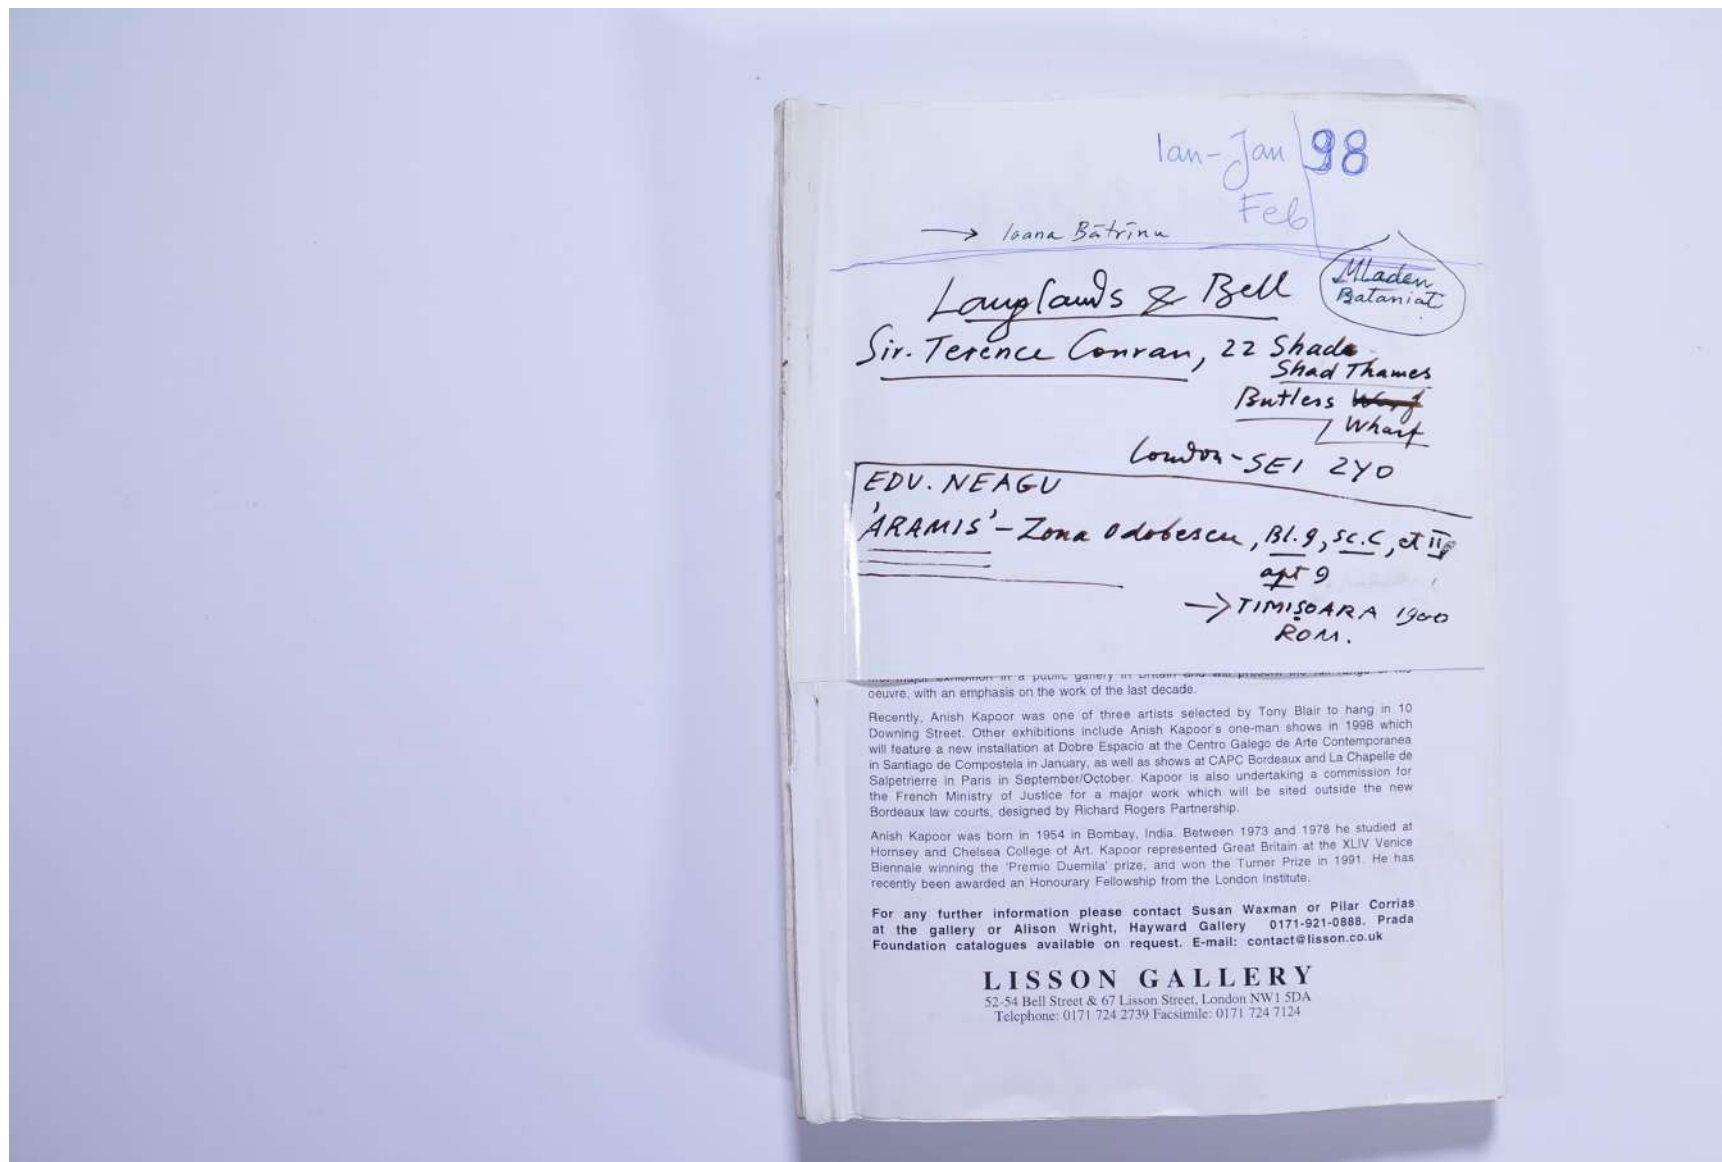 Ian-Jan 98
Feb
→ Ioana Bătrînu
Mladen
Bataniat
Langlands & Bell
Sir. Terence Conran, 22 Shade
Shad Thames
Butlers Warf
Wharf
London-SE1 2YO
EDV. NEAGU
'ARAMIS' - Zona Odobescu, Bl.9, sc.C, et II
apt 9
→ TIMIȘOARA 1900
ROM.
major exhibition in a public gallery in Britain and will present the full range of his
oeuvre, with an emphasis on the work of the last decade.
Recently, Anish Kapoor was one of three artists selected by Tony Blair to hang in 10
Downing Street. Other exhibitions include Anish Kapoor's one-man shows in 1998 which
will feature a new installation at Dobre Espacio at the Centro Galego de Arte Contemporanea
in Santiago de Compostela in January, as well as shows at CAPC Bordeaux and La Chapelle de
Salpetrierre in Paris in September/October. Kapoor is also undertaking a commission for
the French Ministry of Justice for a major work which will be sited outside the new
Bordeaux law courts, designed by Richard Rogers Partnership.
Anish Kapoor was born in 1954 in Bombay, India. Between 1973 and 1978 he studied at
Hornsey and Chelsea College of Art. Kapoor represented Great Britain at the XLIV Venice
Biennale winning the 'Premio Duemila' prize, and won the Turner Prize in 1991. He has
recently been awarded an Honourary Fellowship from the London Institute.
For any further information please contact Susan Waxman or Pilar Corrias
at the gallery or Alison Wright, Hayward Gallery 0171-921-0888. Prada
Foundation catalogues available on request. E-mail: contact@lisson.co.uk
LISSON GALLERY
52-54 Bell Street & 67 Lisson Street, London NW1 5DA
Telephone: 0171 724 2739 Facsimile: 0171 724 7124